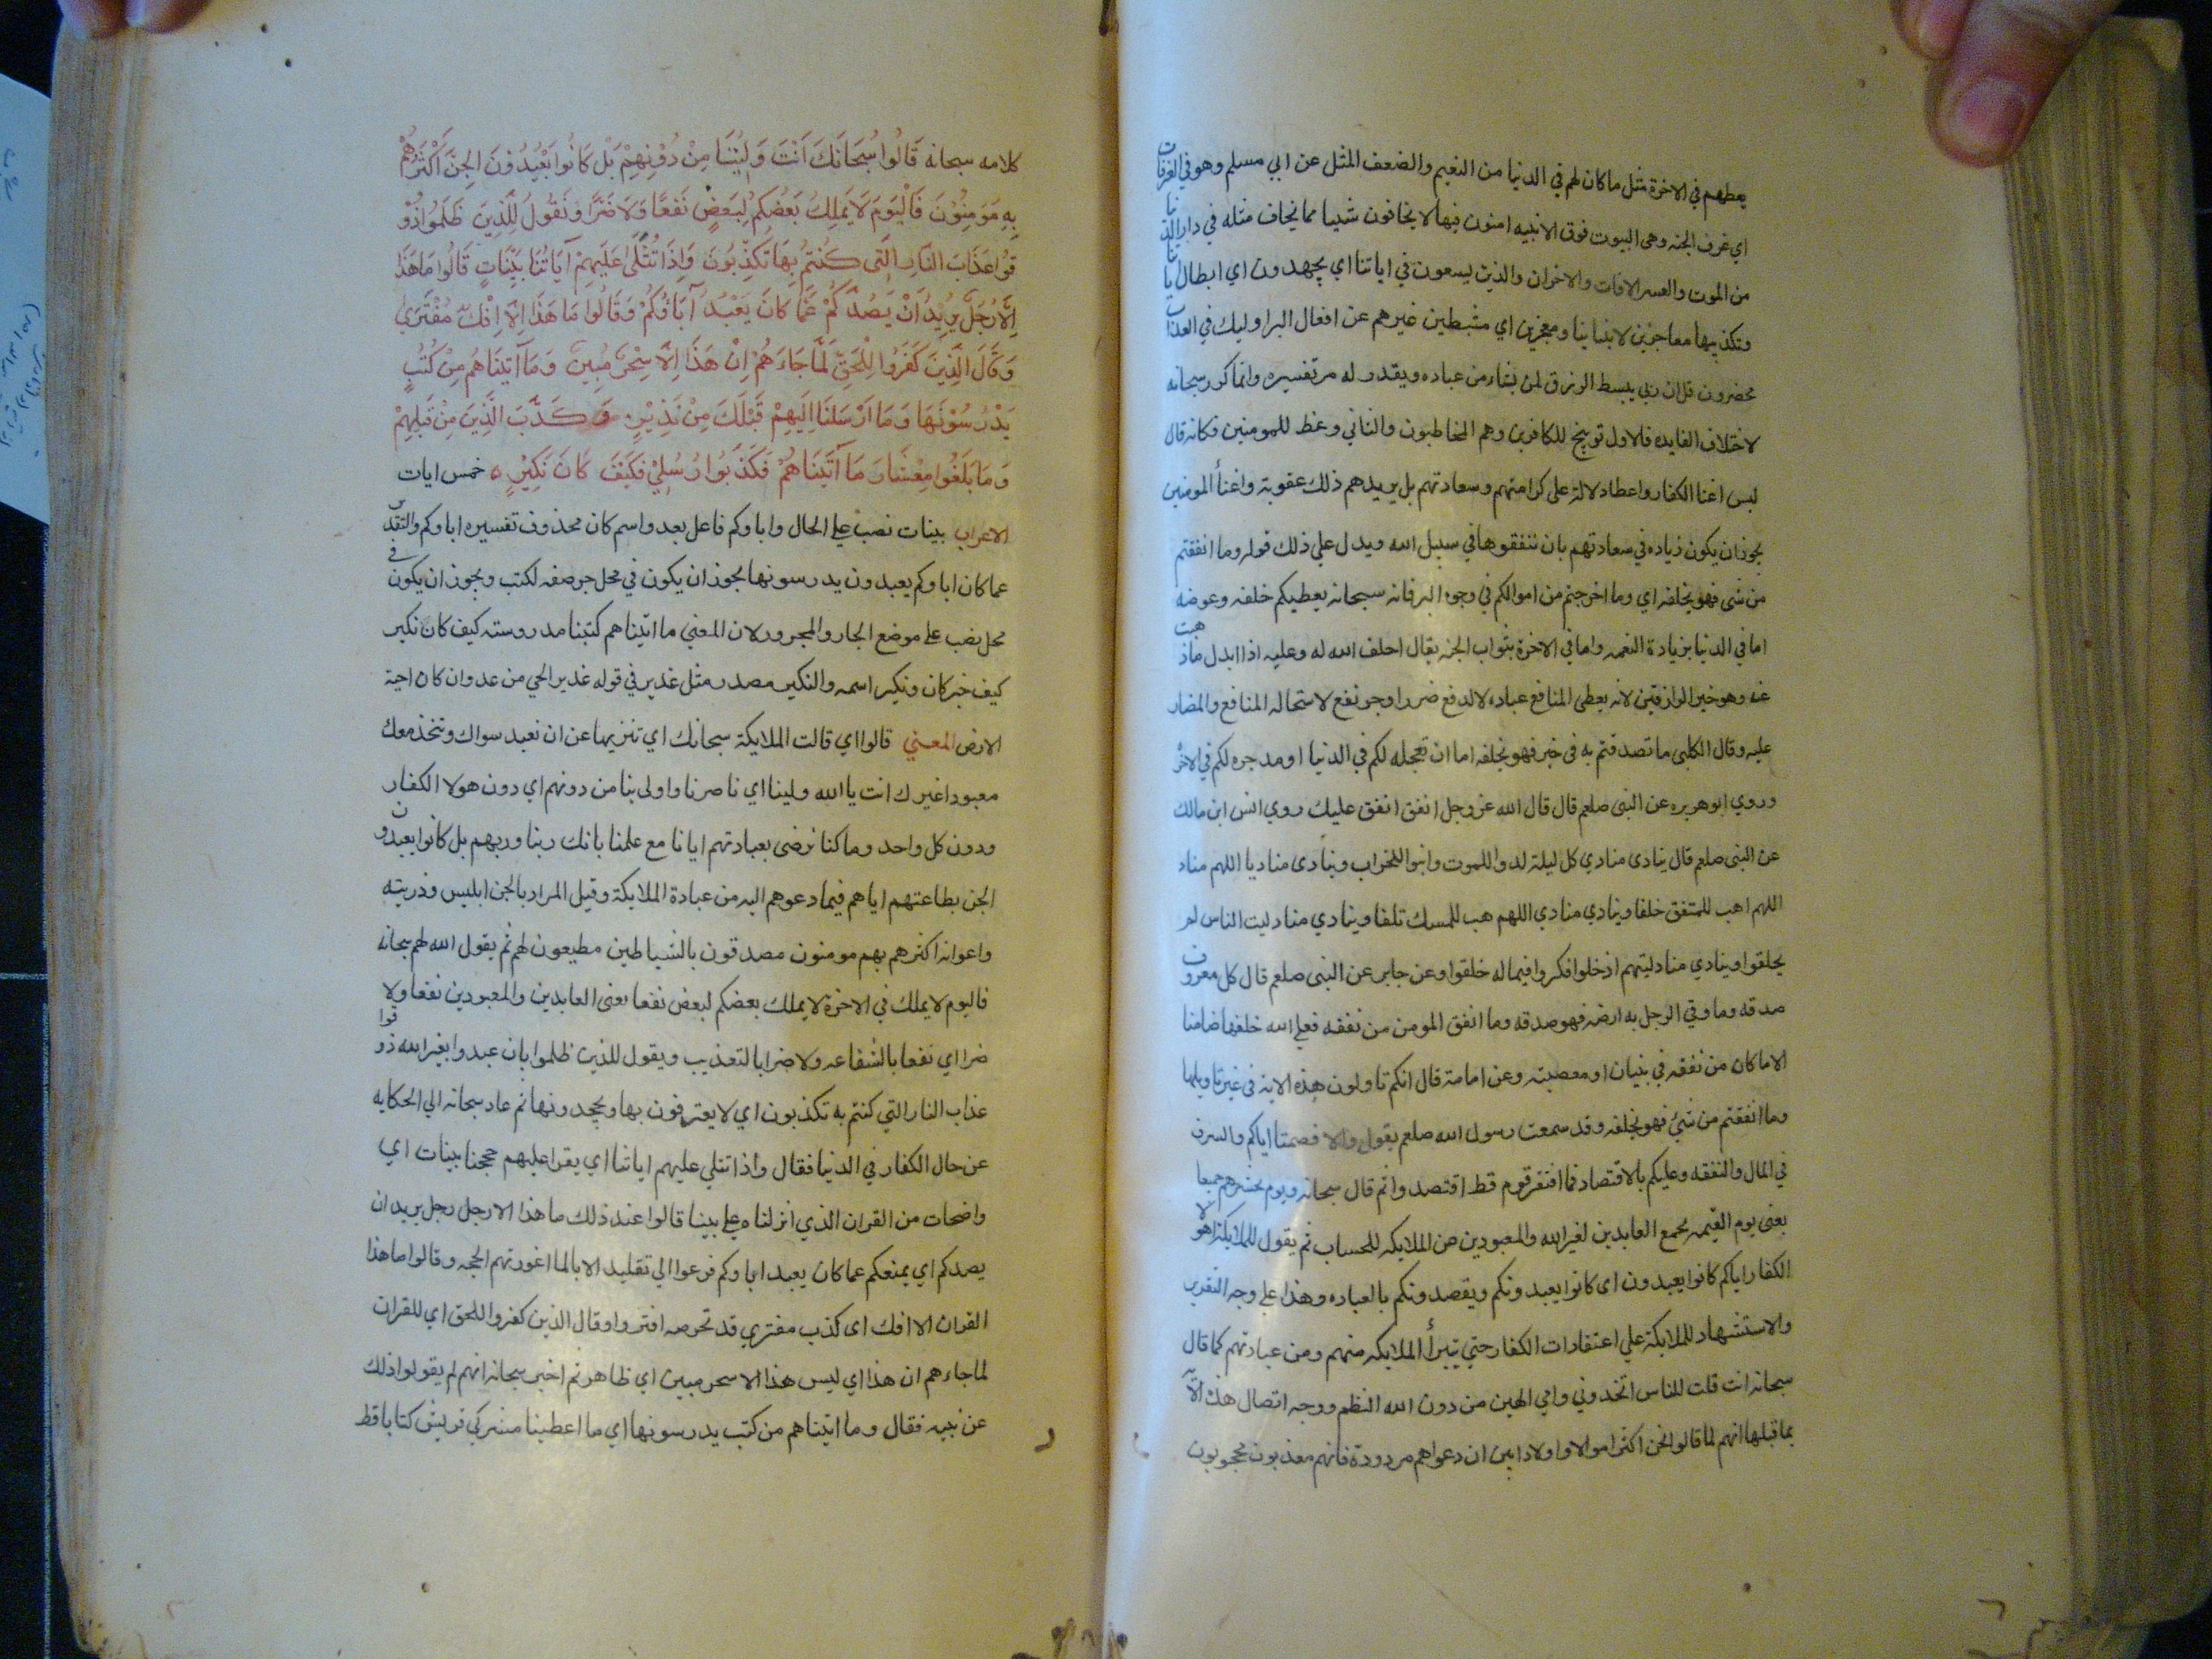 يعطهم في الاخرة مثل ما كان لهم في الدنيا من النعيم والضعف المثل عن ابي مسلم وهو في الغرفات
اي غرف الجنه وهي البيوت فوق الابنيه امنون فيها لا يخافون شييا مما يخاف مثله في دار الدنيا
من الموت والعسر الافات والاحزان والذين يسعون في اياتنا اي يجهدون اي ابطال اياتنا
وتكذيبها معاجزين لانبيائنا ومعجزين اي مثبطين غيرهم عن افعال البر اوليك في العذاب
محضرون قل ان ربي يبسط الرزق لمن يشاء من عباده ويقدر له مر تفسيره وانما كرر سبحانه
لاختلاف الفايده فالاول توبيخ للكافرين وهم المخاطبون والثاني وعظ للمومنين فكانه قال
ليس اغنا الكفار واعطا دلالة على كرامتهم وسعادتهم بل يريدهم ذلك عقوبة واغنأ المومنين
يجوز ان يكون زياده في سعادتهم بان ننفقوها في سبيل الله ويدل علي ذلك قوله وما انفقتم
من شي فهو يخلفه اي وما اخرجتم من اموالكم في وجوه البر فانه سبحانه يعطيكم خلفه وعوضه
اما في الدنيا بزيادة النعمه واما في الاخرة بثواب الجنه يقال اخلف الله له وعليه اذا ابدل ماذهبت
عنه وهو خير الرازقين لانه يعطي المنافع عباده لا لدفع ضرر او جر نفع لاستحاله المنافع والمضار
عليه وقال الكلبي ما تصدقتم به في خير فهو يخلفه اما ان تعجله لكم في الدنيا او مدخره لكم في الاخرة
وروي ابو هريره عن النبي صلعم قال قال الله عز وجل انفق انفق عليك روي انس ابن مالك
عن النبي صلعم قال ينادى منادي كل ليلة لدوا للموت وابنوا للخراب وينادى مناديا اللهم مناد
اللهم اهب للمتفق خلفا وينادي منادي اللهم هب للمسك تلفا وينادي مناد ليت الناس لم
يخلقوا وينادي مناد ليتهم اذ خلوا فكروا فيما له خلقوا وعن جابر عن النبي صلعم قال كل معروف
صدقه وما وقي الرجل به ارضه فهو صدقه وما انفق المومن من نفقه فعلي الله خلفها ضامنا
الا ما كان من نفقه في بنيان او معصيته وعن امامة قال انكم تاولون هذه الايه في غير تاويلها
وما انفقتم من شيء فهو يخلفه وقد سمعت رسول الله صلعم يقول والا فصمتا اياكم والسرف
في المال والنفقه وعليكم بالاقتصاد فما افتقر قوم قط اقتصدوا ثم قال سبحانه ويوم نحشرهم جميعا
يعني يوم القيمه يجمع العابدين لغير الله والمعبودين من الملايكه للحساب ثم يقول للملايكة اهولا
الكفار اياكم كانوا يعبدون اى كانوا يعبدونكم ويقصدونكم بالعباده وهذا علي وجه التقرير
والاستشهاد للملايكة علي اعتقادات الكفار حتي يتبرأ الملايكه منهم ومن عبادتهم كما قال
سبحانه انت قلت للناس اتخذوني وامي الهين من دون الله النظم ووجه اتصال هذه الآيه
بما قبلها انهم لما قالوا نحن اكثر اموالا واولادا بين ان دعواهم مردودة فانهم معذبون محجوبون
كلامه سبحانه قَالُوا سُبْحَانَكَ اَنْتَ وَلِيُّنَا مِنْ دُوْنِهِمْ بَلْ كَانُوا يَعْبُدُوْنَ الجِنَّ أكْثَرُهُمْ
بِهِمْ مُومِنُوْنَ فَالْيَوْمَ لَا يَمْلِكُ بَعْضُكُمْ لِبَعْضٍ نَفْعًا وَلَا ضَرًّا وَنَقُوْلُ لِلَّذِيْنَ ظَلَمُوْا ذُوْ
قُوْا عَذَابَ النَّارِ الَّتِى كُنْتُمْ بِهَا تُكَذِّبُونَ وَاِذَا تُتْلَىٰ عَلَيْهِمْ آيَاتُنَا بَيِّنَاتٍ قَالُوا مَا هَذَا
اِلَّا رَجُلٌ يُرِيْدُ اَنْ يَصُدَّكُمْ عَمَّا كَانَ يَعْبُدُ آبَاؤُكُمْ وَقَالُوا مَا هَذَا اِلَّا اِفْكٌ مُفْتَرَي
وَقَالَ الَّذِيْنَ كَفَرُوا لِلْحَقِّ لَمَّا جَاءَهُمْ اِنْ هَذَا اِلَّا سِحْرٌ مُبِيْنٌ وَمَا آتَيْنَاهُمْ مِنْ كُتُبٍ
يَدْرُسُوْنَهَا وَمَا اَرْسَلْنَا اِلَيْهِمْ قَبْلَكَ مِنْ نَذِيْرٍ وَكَذَّبَ الَّذِيْنَ مِنْ قَبْلِهِمْ
وَمَا بَلَغُوا مِعْشَارَ مَا آتَيْنَاهُمْ فَكَذَّبُوا رُسُلِيْ فَكَيْفَ كَانَ نَكِيْرِ ه خمس ايات
الاعراب بينات نصب علي الحال واباوكم فاعل يعبد واسم كان محذوف تفسيره اباوكم والتقدير
عما كان اباوكم يعبدون يدرسونها يجوز ان يكون في محل جر صفه لكتب ويجوز ان يكون في
محل نصب علي موضع الجار والمجرور لان المعني ما اتيناهم كتبنا مدروسته كيف كان نكير
كيف خبر كان ونكير اسمه والنكير مصدر مثل غدير في قوله غدير الحي من عدوان كان احية
الارض المعني قالوا اي قالت الملايكة سبحانك اي تنزيها عن ان نعبد سواك ونتخذ معك
معبودا غيرك انت يا الله ولينا اي ناصرنا واولى بنا من دونهم اي دون هولا الكفار
ودون كل واحد وما كنا نرضى بعبادتهم ايانا مع علمنا بانك ربنا وربهم بل كانوا يعبدون
الجن بطاعتهم اياهم فيما دعوهم اليه من عبادة الملايكة وقيل المراد بالجن ابليس وذريته
واعوانه اكثرهم بهم مومنون مصدقون بالشياطين مطيعون لهم ثم يقول الله لهم سبحانه
فاليوم لا يملك في الاخرة لا يملك بعضكم لبعض نفعا يعنى العابدين والمعبودين نفعا ولا
ضرا اي نفعا بالشفاعه ولا ضرا بالتعذيب ويقول للذين ظلموا بان عبدوا بغير الله ذوقوا
عذاب النار التي كنتم به تكذبون اي لا يعترفون بها ويجحدونها ثم عاد سبحانه الي الحكايه
عن حال الكفار في الدنيا فقال واذا تتلي عليهم اياتنا اي يقرا عليهم حججنا بينات اي
واضحات من القران الذي انزلناه علي نبينا قالوا عند ذلك ما هذا الا رجل رجل يريد ان
يصدكم اي يمنعكم عما كان يعبد اباوكم فزعوا الي تقليد الابا لما اعوزتهم الحجه وقالوا ما هذا
القران الا افك اى كذب مفتري قد تخرصه افترا وقال الذين كفروا للحق اي للقران
لما جاءهم ان هذا اي ليس هذا الا سحر مبين اي ظاهر ثم اخبر سبحانه انهم لم يقولوا ذلك
عن نبيه فقال وما اتيناهم من كتب يدرسونها اي ما اعطينا مشركي قريش كتابا قط